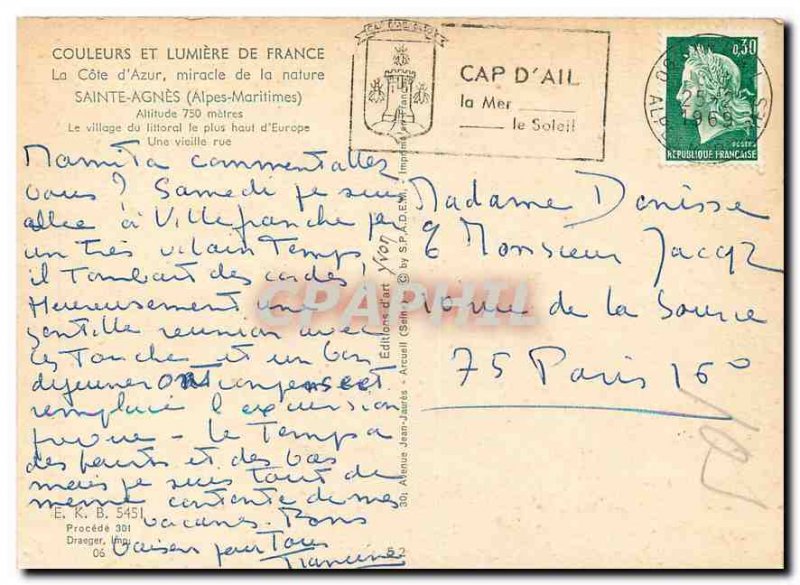 COULEURS ET LUMIÈRE DE FRANCE
La Côte d'Azur, miracle de la nature
SAINTE-AGNÈS (Alpes-Maritimes)
Altitude 750 mètres
Le village du littoral le plus haut d'Europe
Une vieille rue
CAP D'AIL
la Mer
le Soleil
0,30
25
1969
POSTES
RÉPUBLIQUE FRANÇAISE
Mamita comment allez
vous? Samedi je suis
allée à Villefranche par
un très vilain temps,
il tombait des cordes!
Heureusement une
gentille reunion avec
les Tonche et un bon
dejeuner ont
remplacé l'excursion
prevue - le temps a
des hauts et des bas
mais je suis tout de
meme contente de mes
vacances. Bons
baisers pour Tous
Francine
E. K. B. 5451
Procédé 301
Draeger, Imp.
06
62
30, Avenue Jean-Jaurès - Arcueil (Seine) © by S.P.A.D.E.M. - Imprimé en France
Editions d'art Yvon
Madame Denisse
& Monsieur Jacqz
10 rue de la Source
75 Paris 16°
CPAPHIL